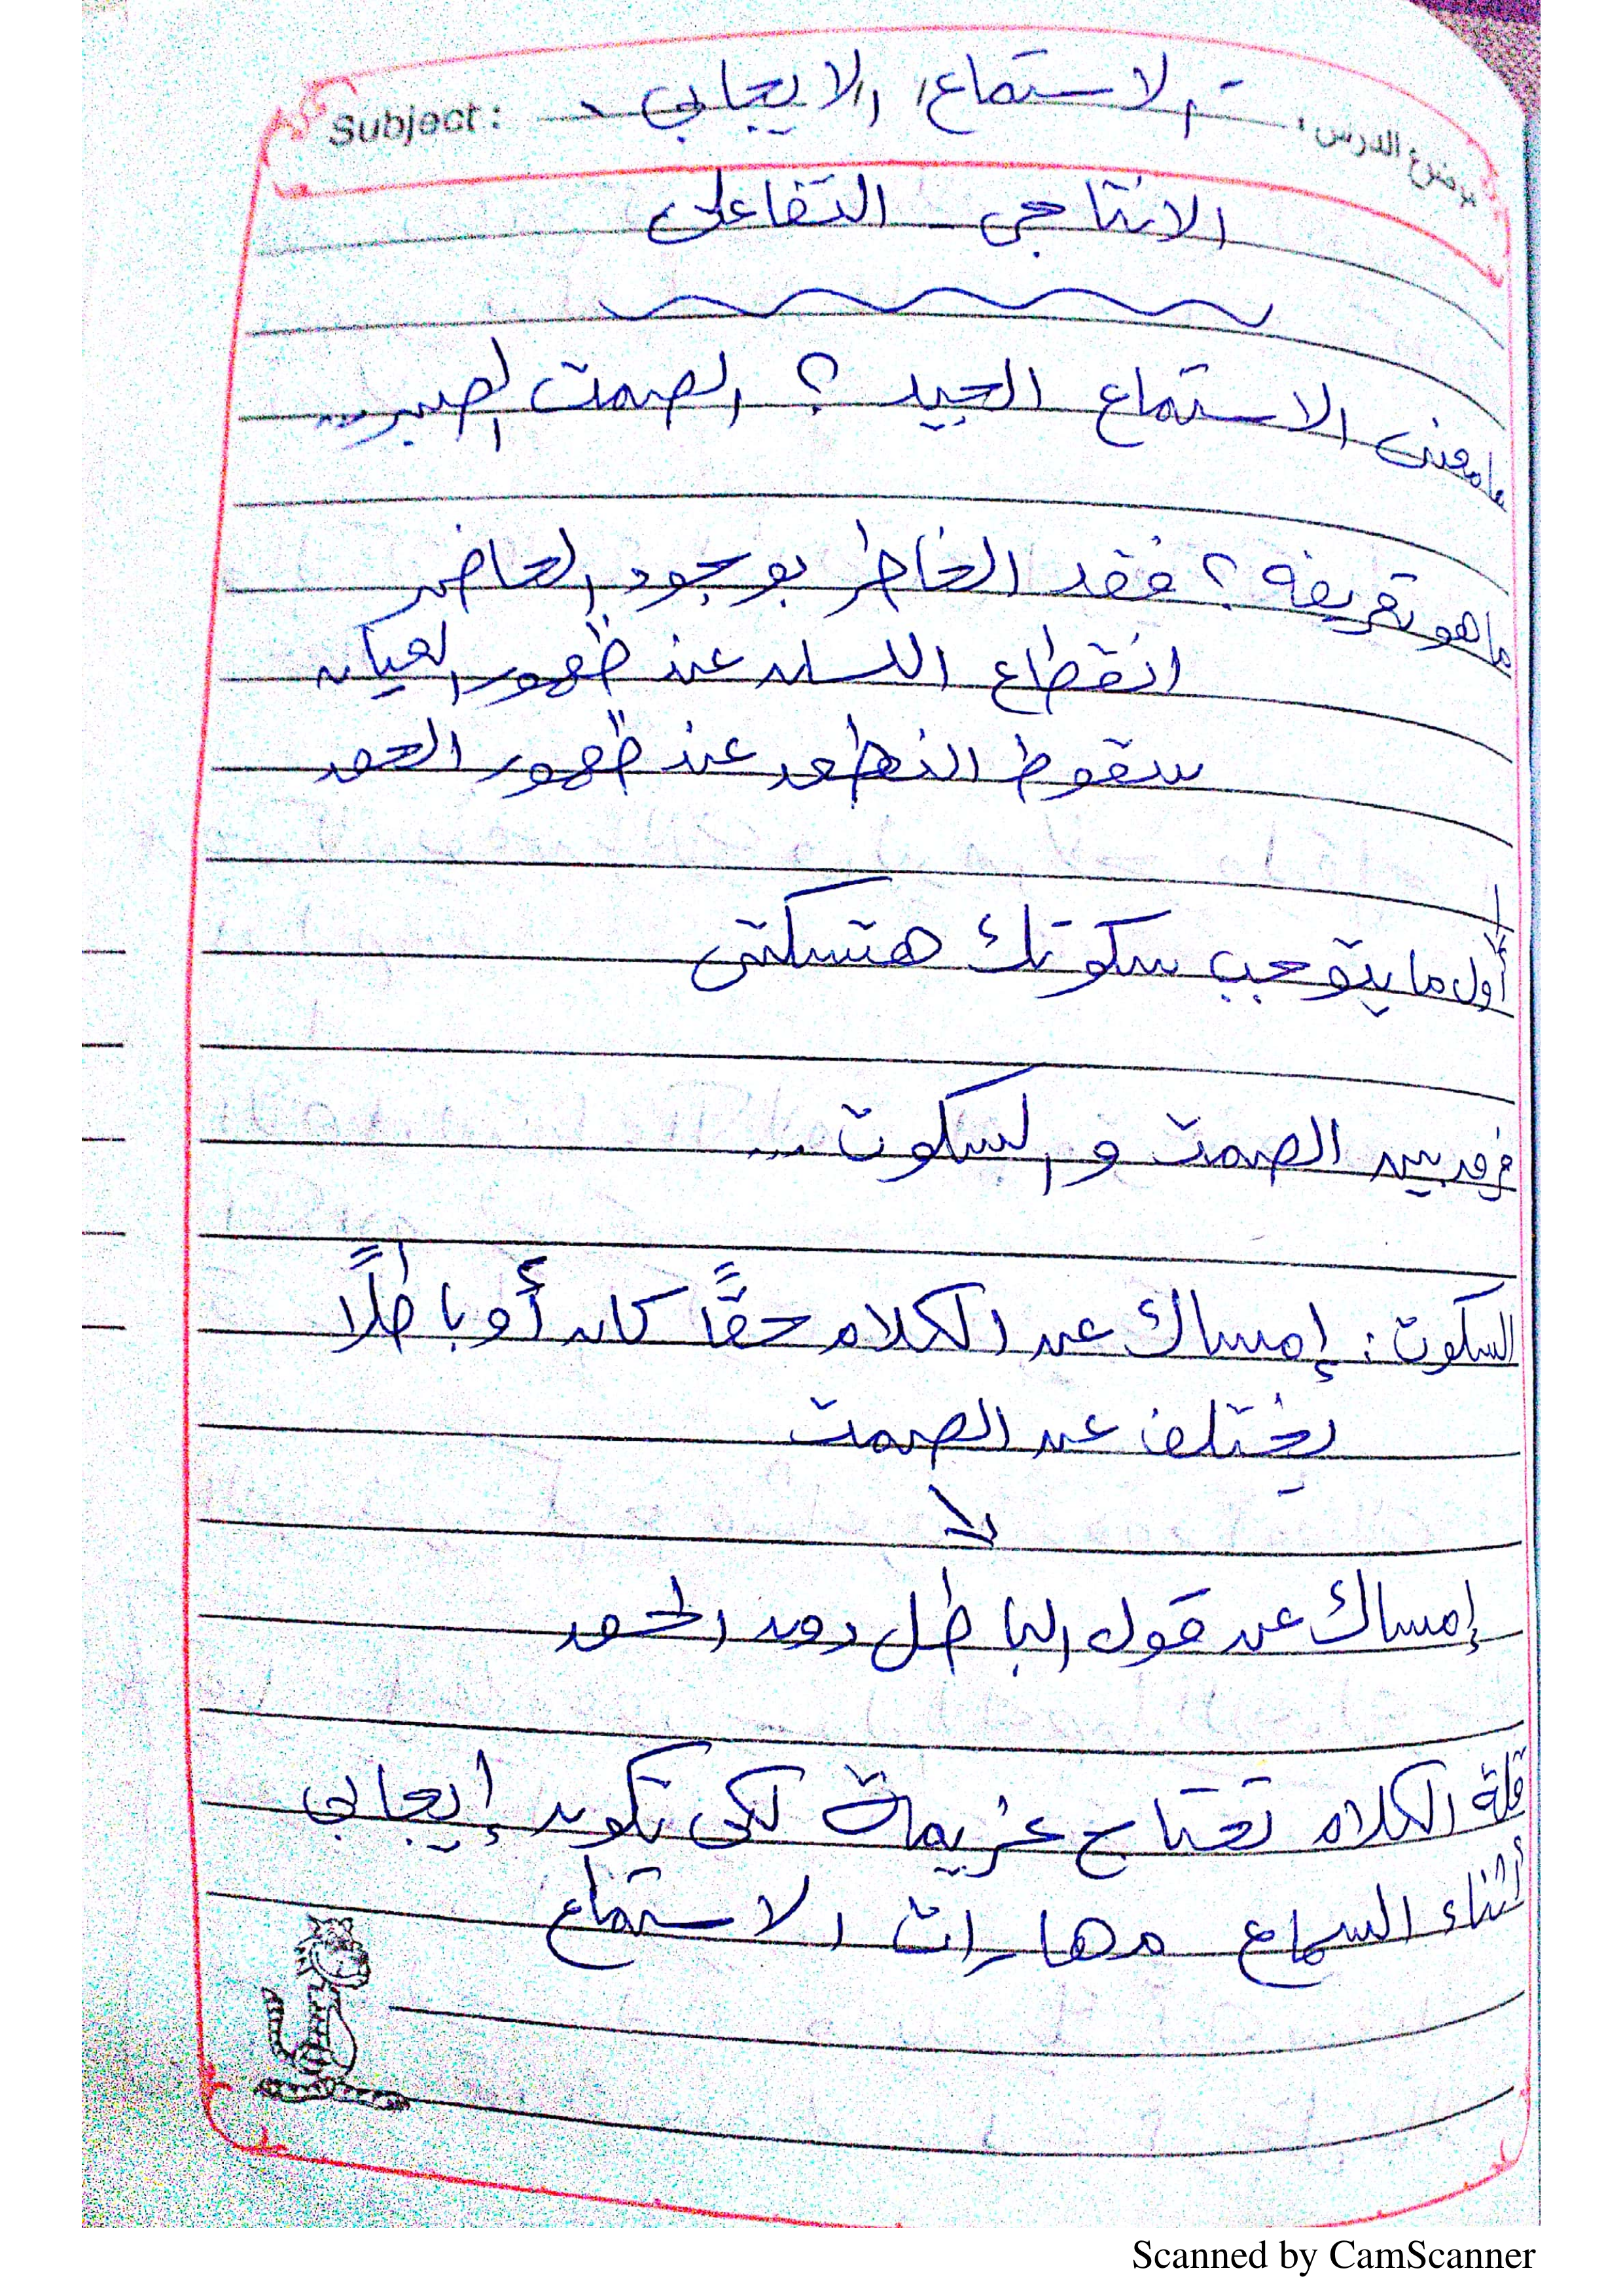 موضوع الدرس : الاستماع الايجابي Subject :
الانتاجي - التفاعلى
مامعنى الاستماع الجيد ؟ الصمت الصبر...
ماهو تعريفه ؟ فقد الخاطر بوجود الحاضر
انقطاع اللسان عند ظهور العيان
سقوط النطق عند ظهور الحق
أول ما يتوجب سكوتك هتسكتى
فرق بين الصمت و السكوت ...
السكوت : إمساك عن الكلام حقًا كان أو باطلًا
يختلف عن الصمت
إمساك عن قول الباطل دون الحق
قلة الكلام تحتاج عزيمة لكى تكون إيجابي
أثناء السماع مهارات الاستماع
Scanned by CamScanner